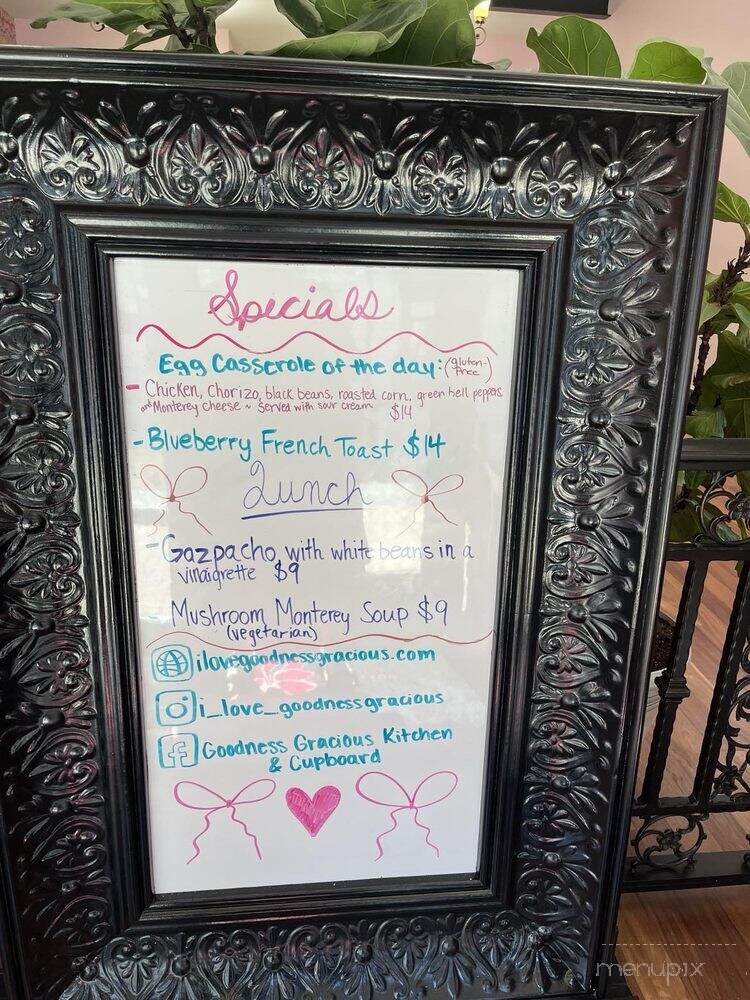 Specials
Egg Casserole of the day: (gluten-free)
- Chicken, Chorizo, black beans, roasted corn, green bell peppers
and Monterey cheese ~ Served with sour cream $14
- Blueberry French Toast $14
Lunch
- Gazpacho with white beans in a
vinaigrette $9
- Mushroom Monterey Soup $9
(vegetarian)
ilovegoodnessgracious.com
i_love_goodnessgracious
Goodness Gracious Kitchen
& Cupboard
menupix